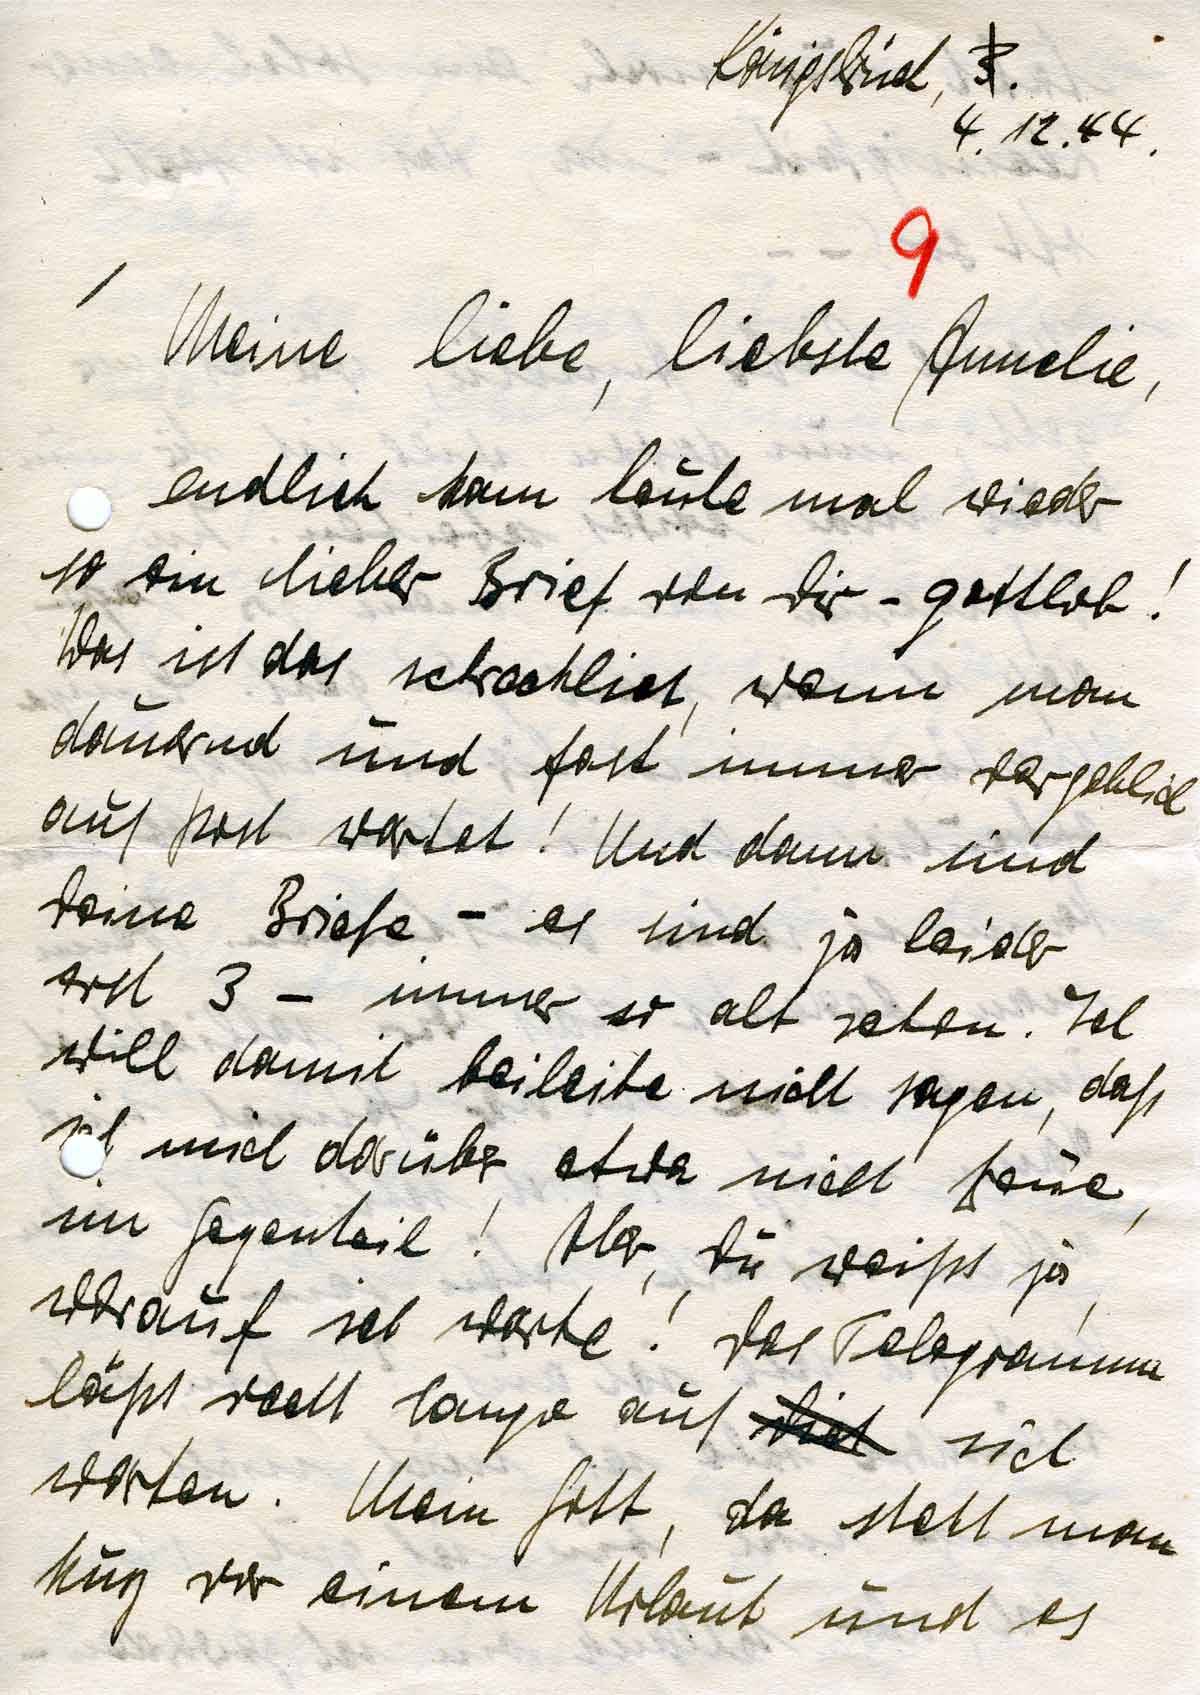 Königsbrück, 3.
4.12.44.
9
Meine liebe, liebste Annelie,
endlich kam heute mal wieder
so ein lieber Brief von Dir - gottlob!
Was ist das schrecklich, wenn man
dauernd und fast immer vergeblich
auf Post wartet! Und dann sind
Deine Briefe - es sind ja leider
erst 3 - immer so alt schon. Ich
will damit beileibe nicht sagen, daß
ich mich darüber etwa nicht freue,
im Gegenteil! Aber, Du weißt ja,
worauf ich warte! Das Telegramm
läßt recht lange auf Dich sich
warten. Mein Gott, da steht man
kurz vor einem Urlaub und es